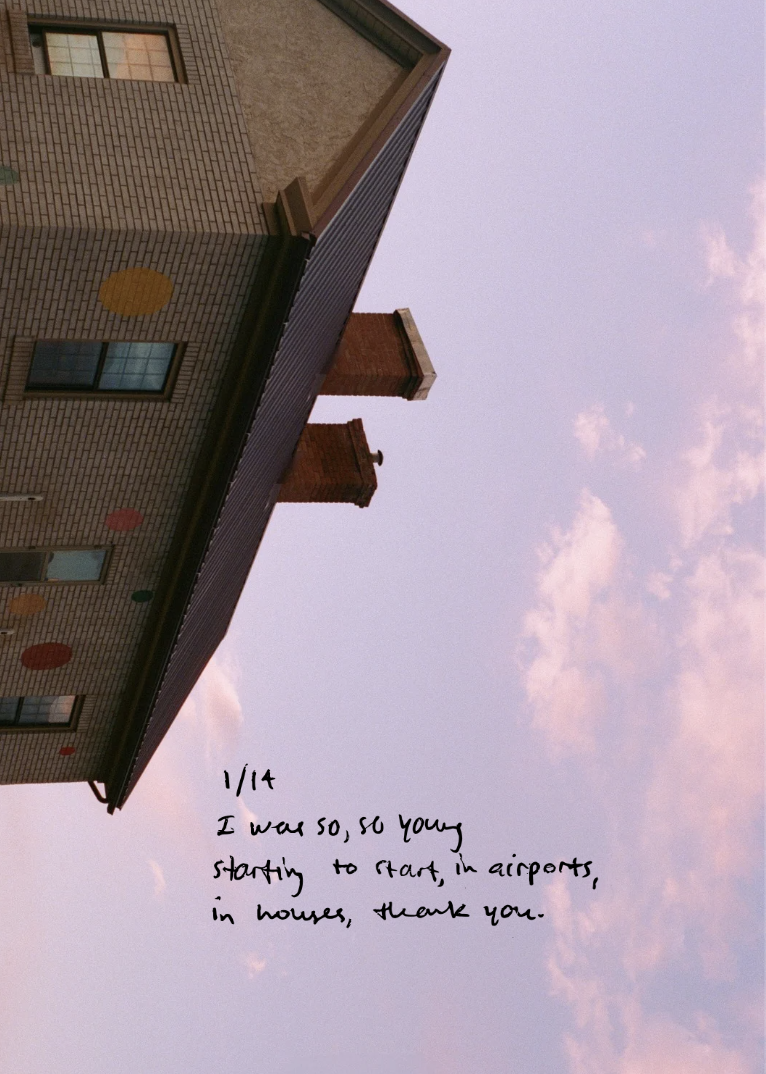 1/14
I was so, so young
starting to start, in airports,
in houses, thank you.